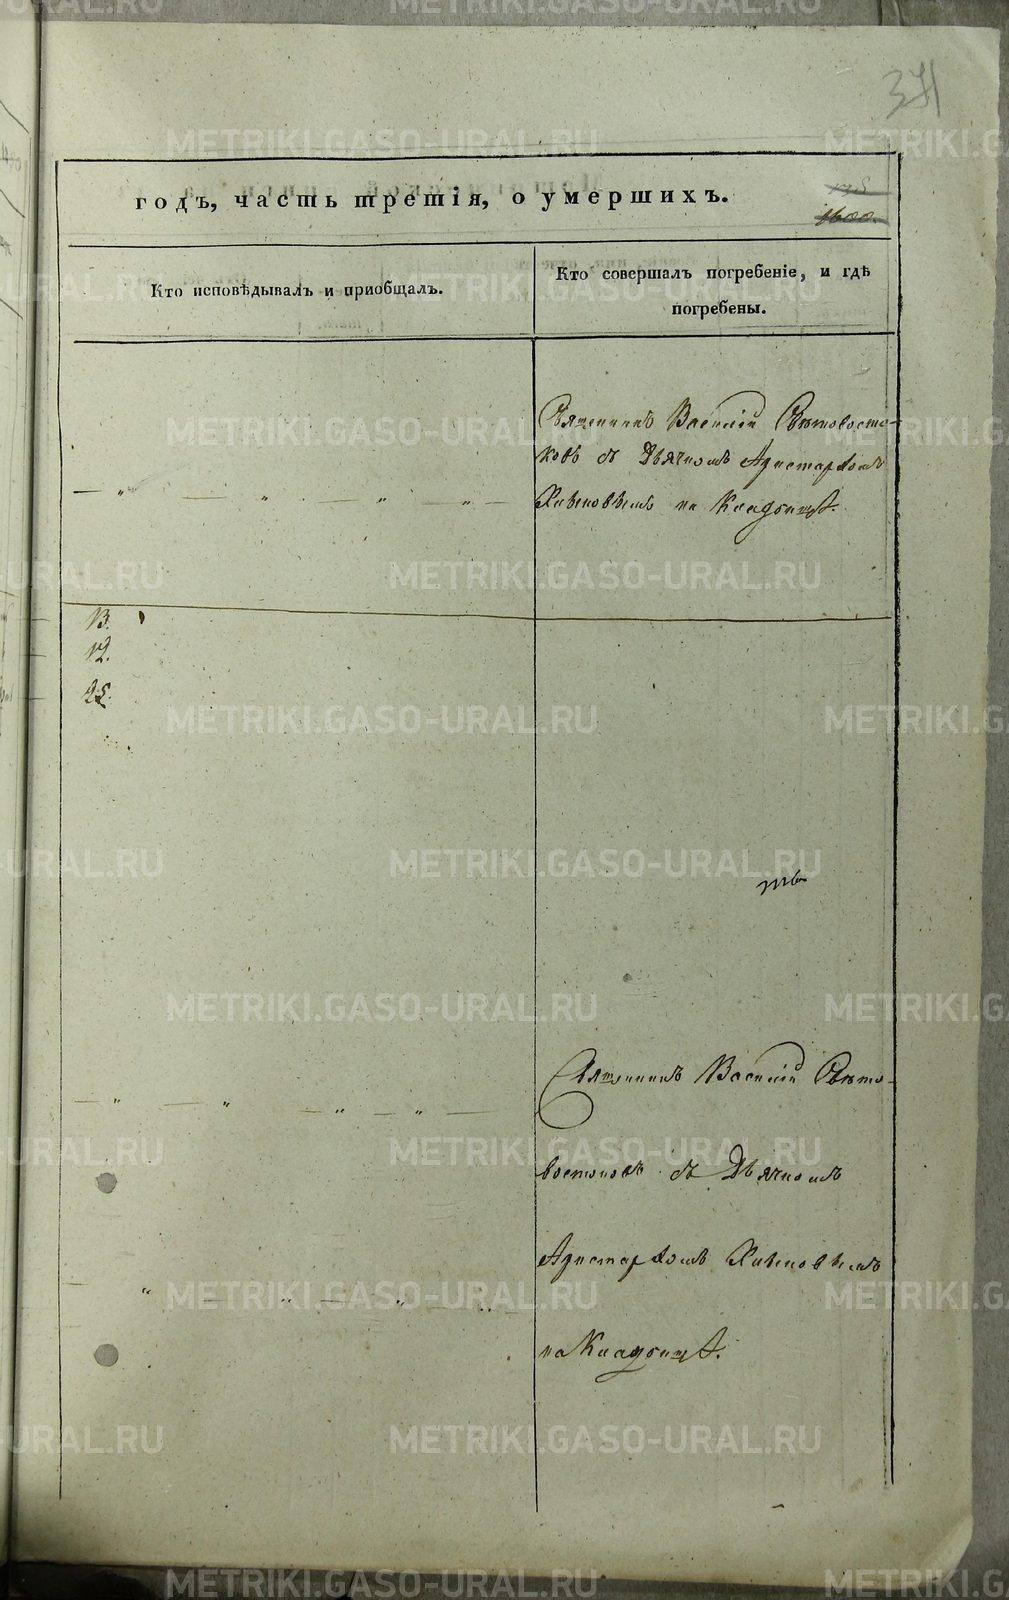 371
годъ, часть третія, о умершихъ.
1600.
Кто исповѣдывалъ и пріобщалъ.
Кто совершалъ погребеніе, и гдѣ
погребены.
Священникъ Василій Свѣтовосто-
ковъ съ Дьячкомъ Аристархомъ
на Кладбищѣ.
13.
12.
25.
Священникъ Василій Свѣто-
востоковъ съ Дьячкомъ
Аристархомъ
на Кладбищѣ.
METRIKI.GASO-URAL.RU